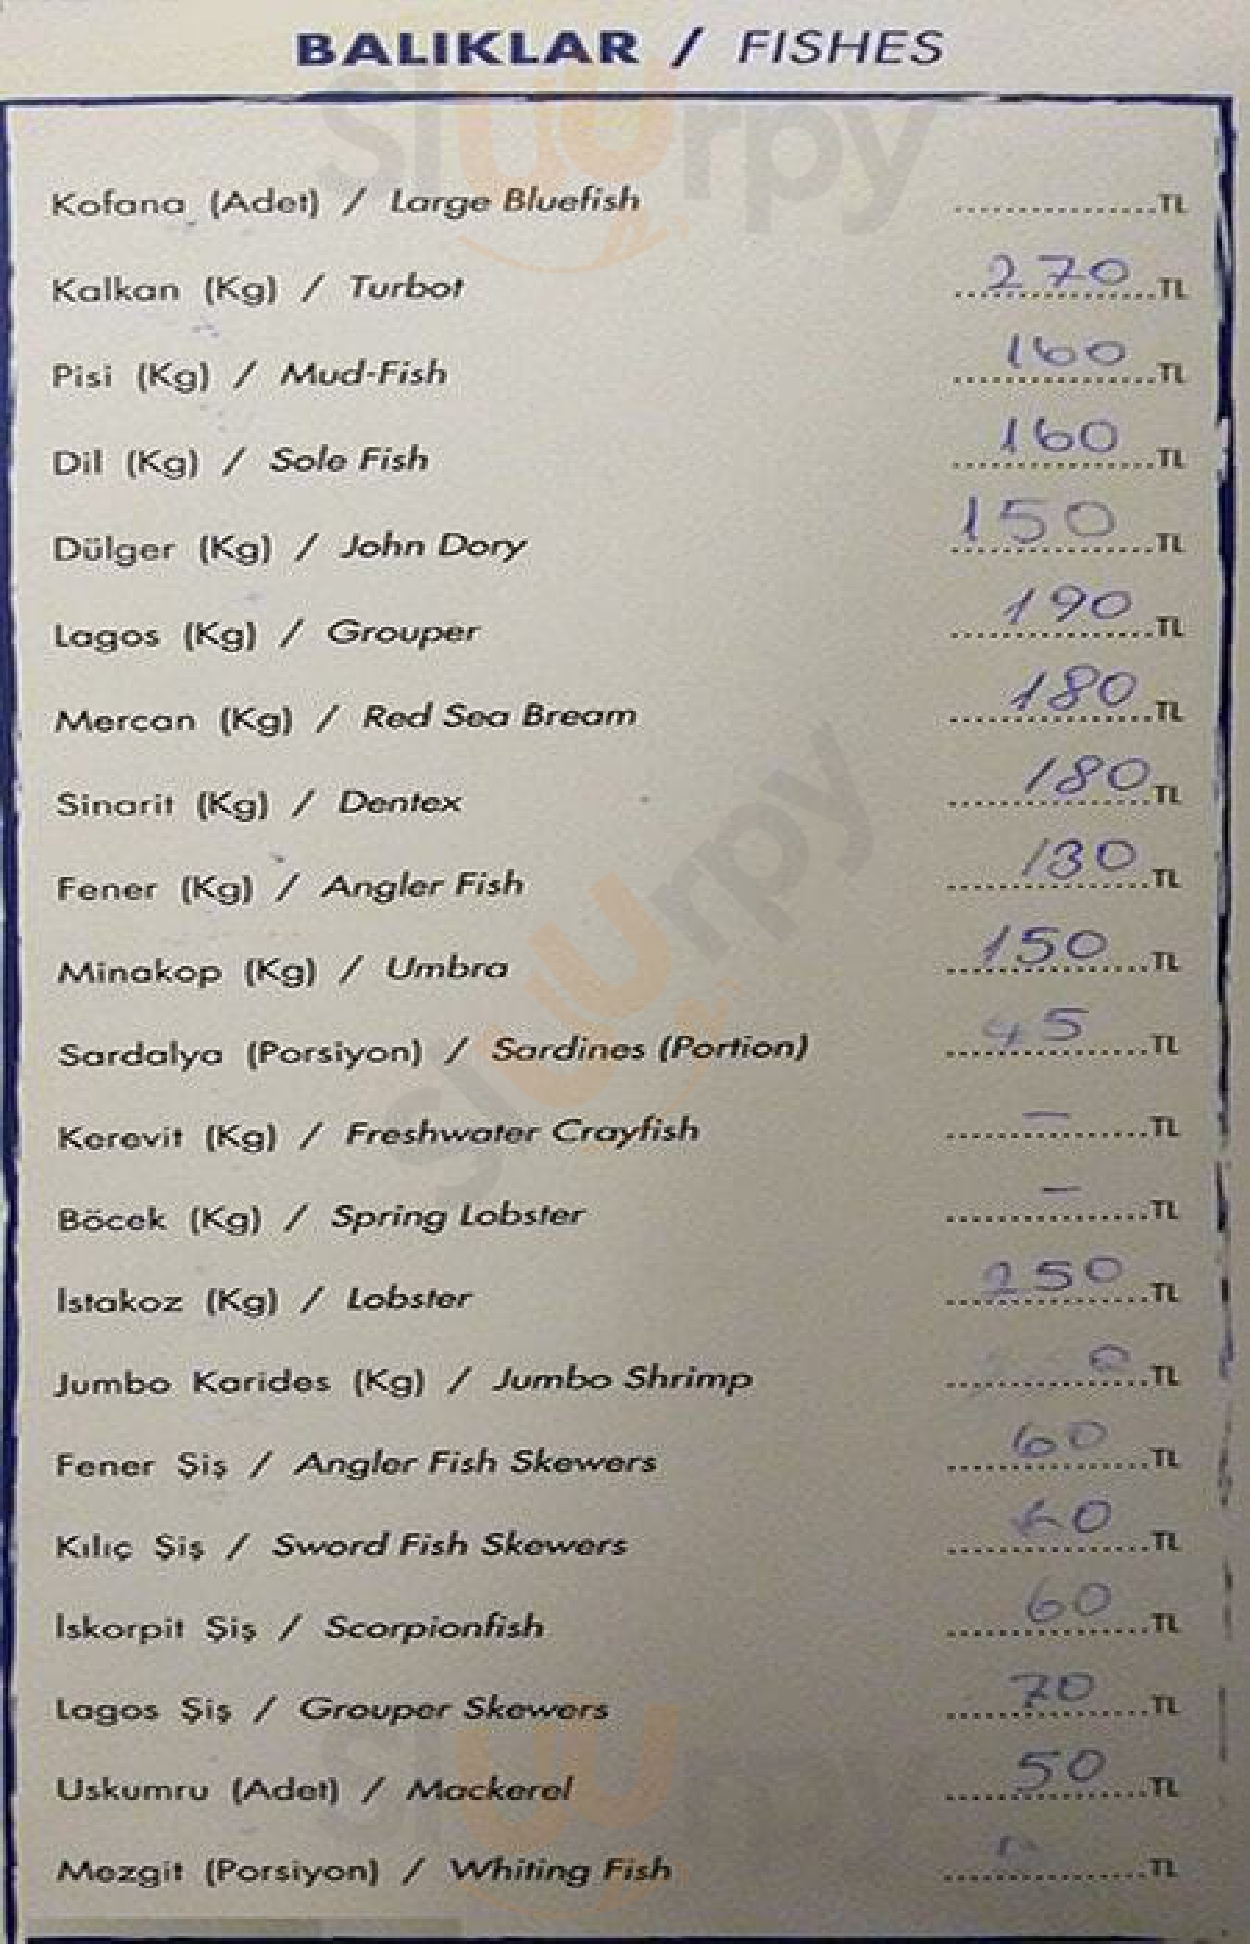 BALIKLAR / FISHES
Kofana (Adet) / Large Bluefish ................TL
Kalkan (Kg) / Turbot 270 TL
Pisi (Kg) / Mud-Fish 160 TL
Dil (Kg) / Sole Fish 160 TL
Dülger (Kg) / John Dory 150 TL
Lagos (Kg) / Grouper 190 TL
Mercan (Kg) / Red Sea Bream 180 TL
Sinarit (Kg) / Dentex 180 TL
Fener (Kg) / Angler Fish 130 TL
Minakop (Kg) / Umbra 150 TL
Sardalya (Porsiyon) / Sardines (Portion) 45 TL
Kerevit (Kg) / Freshwater Crayfish — TL
Böcek (Kg) / Spring Lobster — TL
İstakoz (Kg) / Lobster 250 TL
Jumbo Karides (Kg) / Jumbo Shrimp TL
Fener Şiş / Angler Fish Skewers 60 TL
Kılıç Şiş / Sword Fish Skewers TL
İskorpit Şiş / Scorpionfish 60 TL
Lagos Şiş / Grouper Skewers 70 TL
Uskumru (Adet) / Mackerel 50 TL
Mezgit (Porsiyon) / Whiting Fish TL
Sluurpy
Sluurpy
Sluurpy